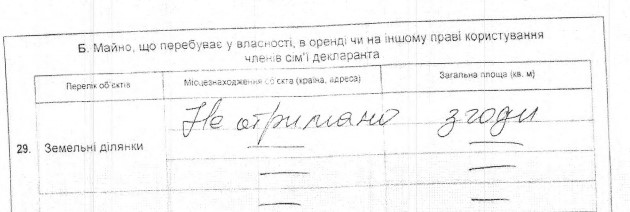 Б. Майно, що перебуває у власності, в оренді чи на іншому праві користування
членів сім'ї декларанта
Перелік об'єктів Місцезнаходження об'єкта (країна, адреса) Загальна площа (кв. м)
Не отримано згоди
29. Земельні ділянки — —
— —
— —